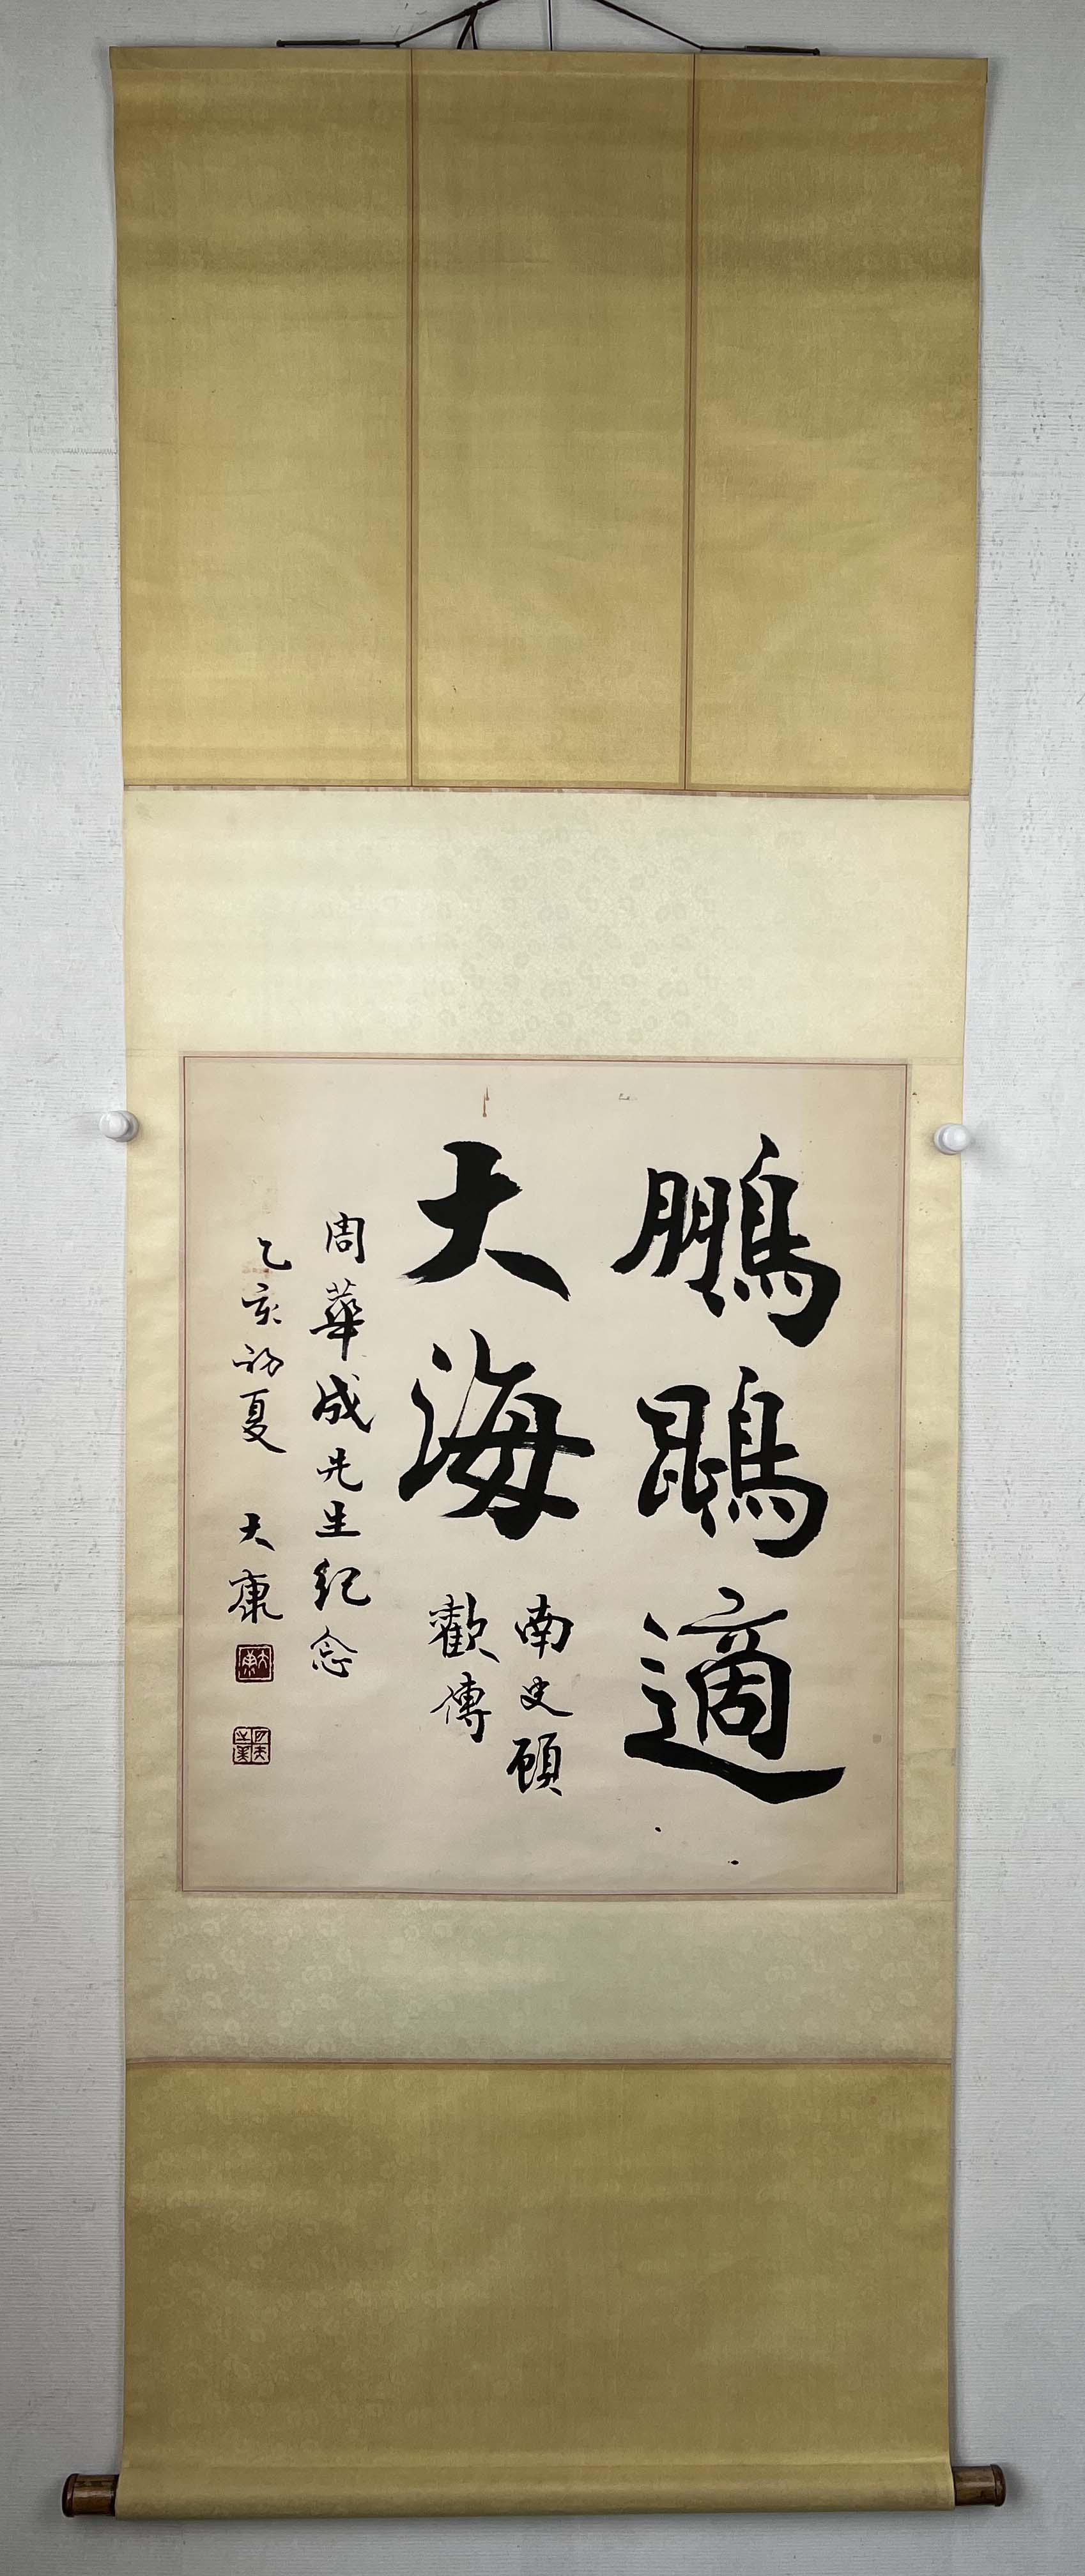 鵬鵾適
大海
南史顧
歡傳
周華成先生紀念
乙亥初夏 大康
大康